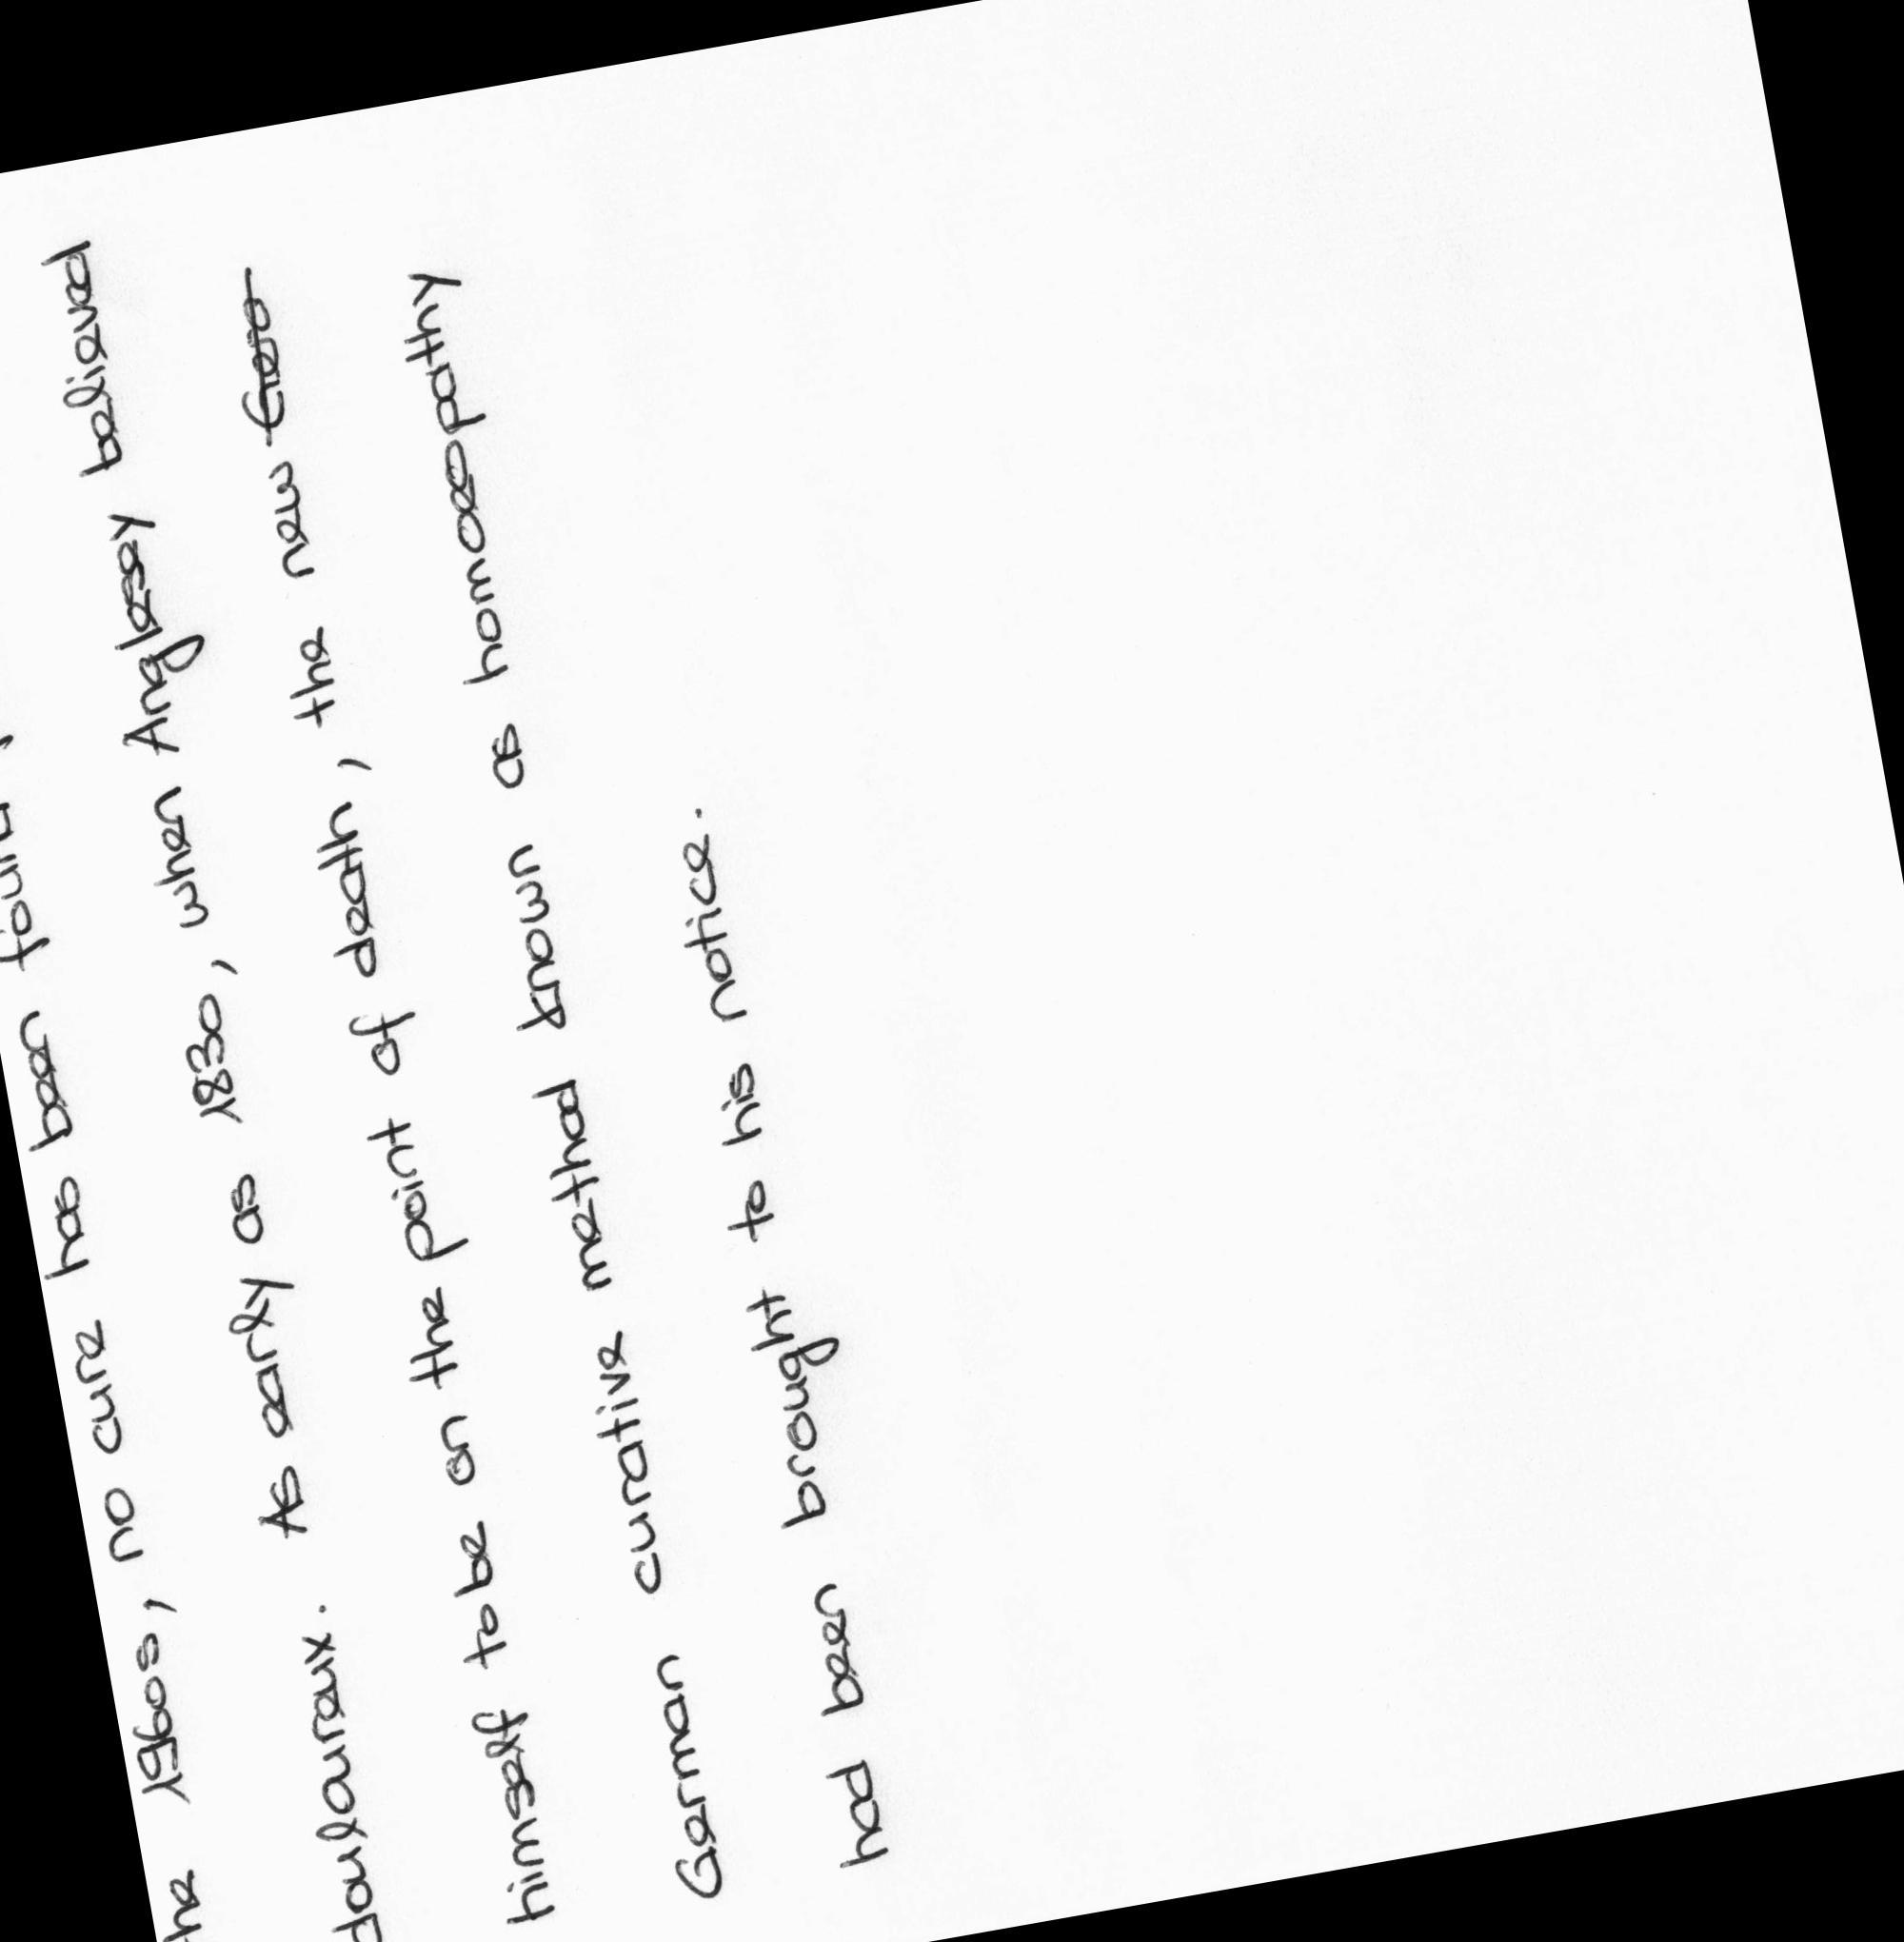 the 1960s, no cure has been found
douloureux. As early as 1830, when Anglesey believed
himself to be on the point of death, the new
German curative method known as homoeopathy
had been brought to his notice.